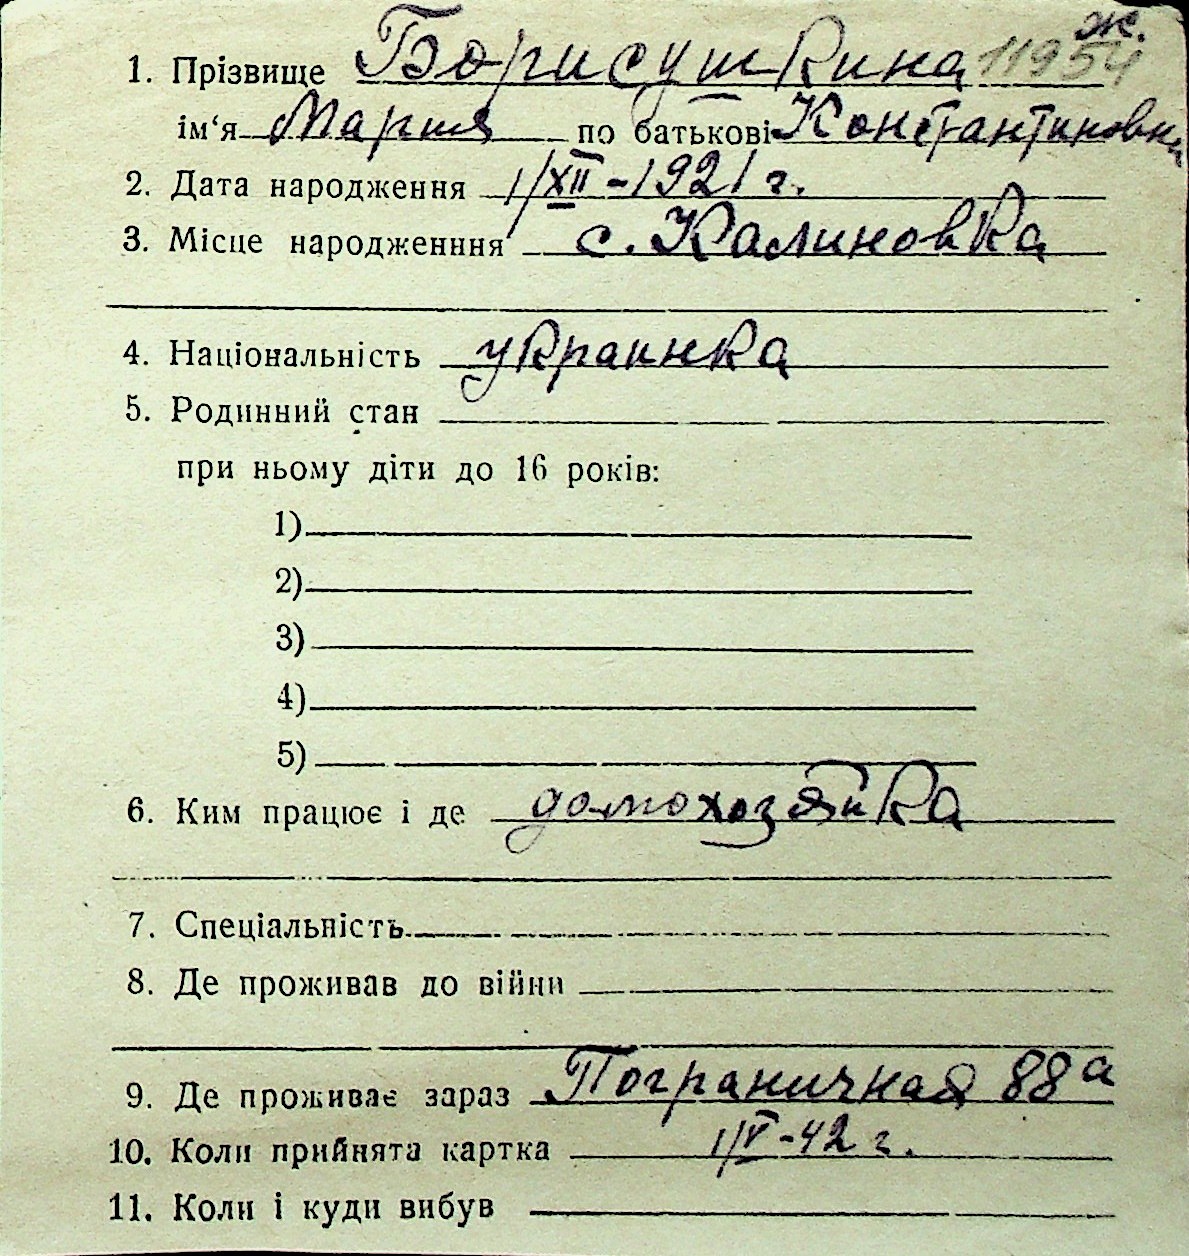 ж.
1. Прізвище Борисушкина 11954
ім‘я Мария по батькові Константиновна
2. Дата народження 1/XII-1921 г.
3. Місце народженння с. Калиновка
4. Національність украинка
5. Родинний стан
при ньому діти до 16 років:
1)
2)
3)
4)
5)
6. Ким працює і де домохозяйка
7. Спеціальність
8. Де проживав до війни
9. Де проживає зараз Пограничная 88а
10. Коли прийнята картка 1/V-42 г.
11. Коли і куди вибув